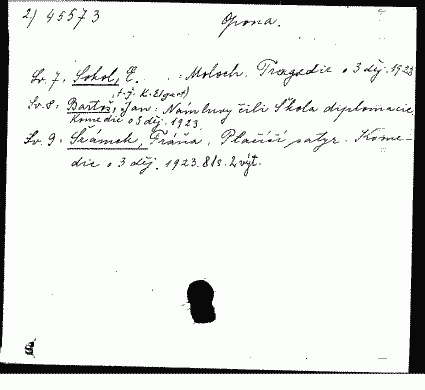 2) 45573 Opona.
Sv. 7: Sokol, E. : Moloch. Tragedie o 3 děj. 1923
(t.j. K. Elgart)
Sv. 8: Bartoš, Jan: Námluvy čili Škola diplomacie.
Komedie o 3 děj. 1923
Sv. 9: Šrámek, Fráňa. Plačící satyr. Kome-
die o 3 děj. 1923. 81 s. 2. výt.